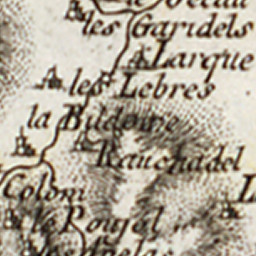 les Garidels
Larque
les Lebres
la Bildoine
Rauchadel
Colom
le Poujol